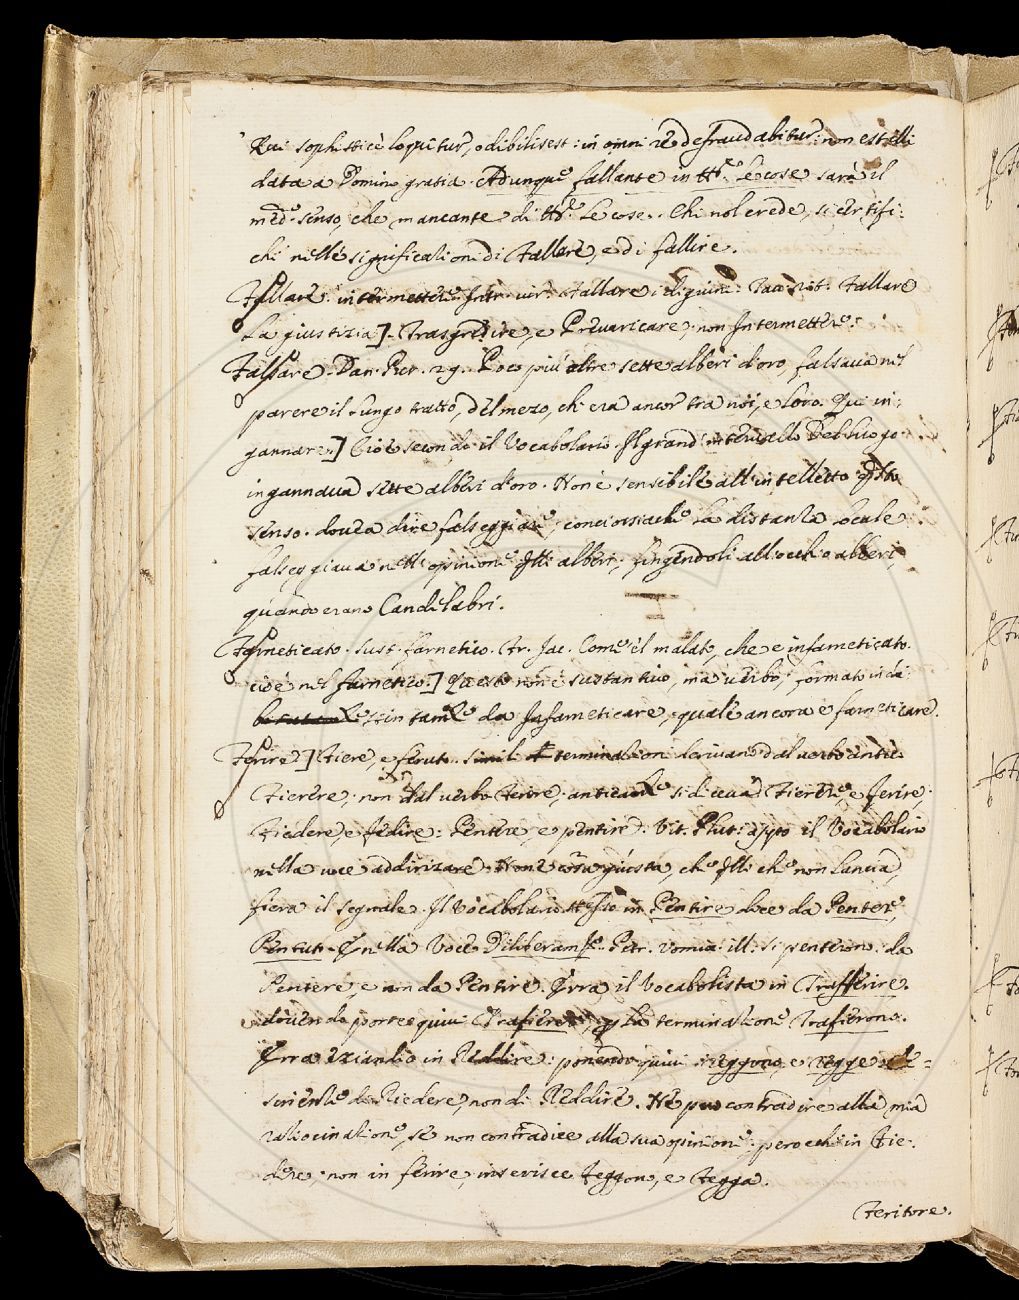 Qui sophisticè loquitur, odibilis est: in omni re defraudabitur: non est illi
data a Domino gratia. Adunque fallante in tte. le cose sarà il
med.o senso, che, mancante di tte. le cose. Chi nol crede, si certifi:
chi nelle significationi di Fallare, e di fallire.
Fallare. intermettere. Intr. vir. Fallare i digiuni. Fallare
la giustizia]. Trasgredire, e Prevaricare; non Intermettere.
Falsare. Dan. Pur. 29. Poco più oltre sette alberi d'oro, falsava nel
parere il lungo tratto, del mezo, ch'era ancor tra noi, e loro. Qui in:
gannare.] Cioè secondo il Vocabolario. Il grand'intervallo del luogo
ingannava sette alberi d'oro. Non è sensibile all'intelletto
senso. dovea dire falseggiare; conciossiache la distanza locale
falseggiava nell'opinione alberi; fingendoli all'occhio alberi,
quando erano Candelabri.
Farneticato. sust. farnetico. Fr. Jac. Com'el malato, che è infarneticato.
cioè nel farnetico.] Questo non è sustantivo, ma verbo, formato inda:
da Infarneticare, quale ancora è farneticare.
Ferire] Fiere, e feruto. simili terminationi derivano dal verbo antico
Fierere, non dal verbo Ferire; si diceva Fierere, e ferire;
Fiedere, e fedire: Pentere, e pentire. Vit. Plut: il Vocabolario
nella voce addirizzare. Non è cosa giusta, che che non lancia,
fiera il segnale. Il Vocabolario stesso in Pentire dice da Pentere,
Pentuto. E nella Voce Petr. vomia ill: si penteron. da
Pentere, e non da Pentire. Erra il Vocabolista in Trafferire.
dovendo porre quivi Trafierere, la terminatione Trafierono.
Erra eziandio in Reddire: ponendo quivi reggono, e regge
di Riedere, non di Reddire. Nè può contradire alla mia
ratiocinatione, se non contradice alla sua opinione: perocche in Fie:
dere, non in ferire, inserisce feggono, e fegga.
Feritore.